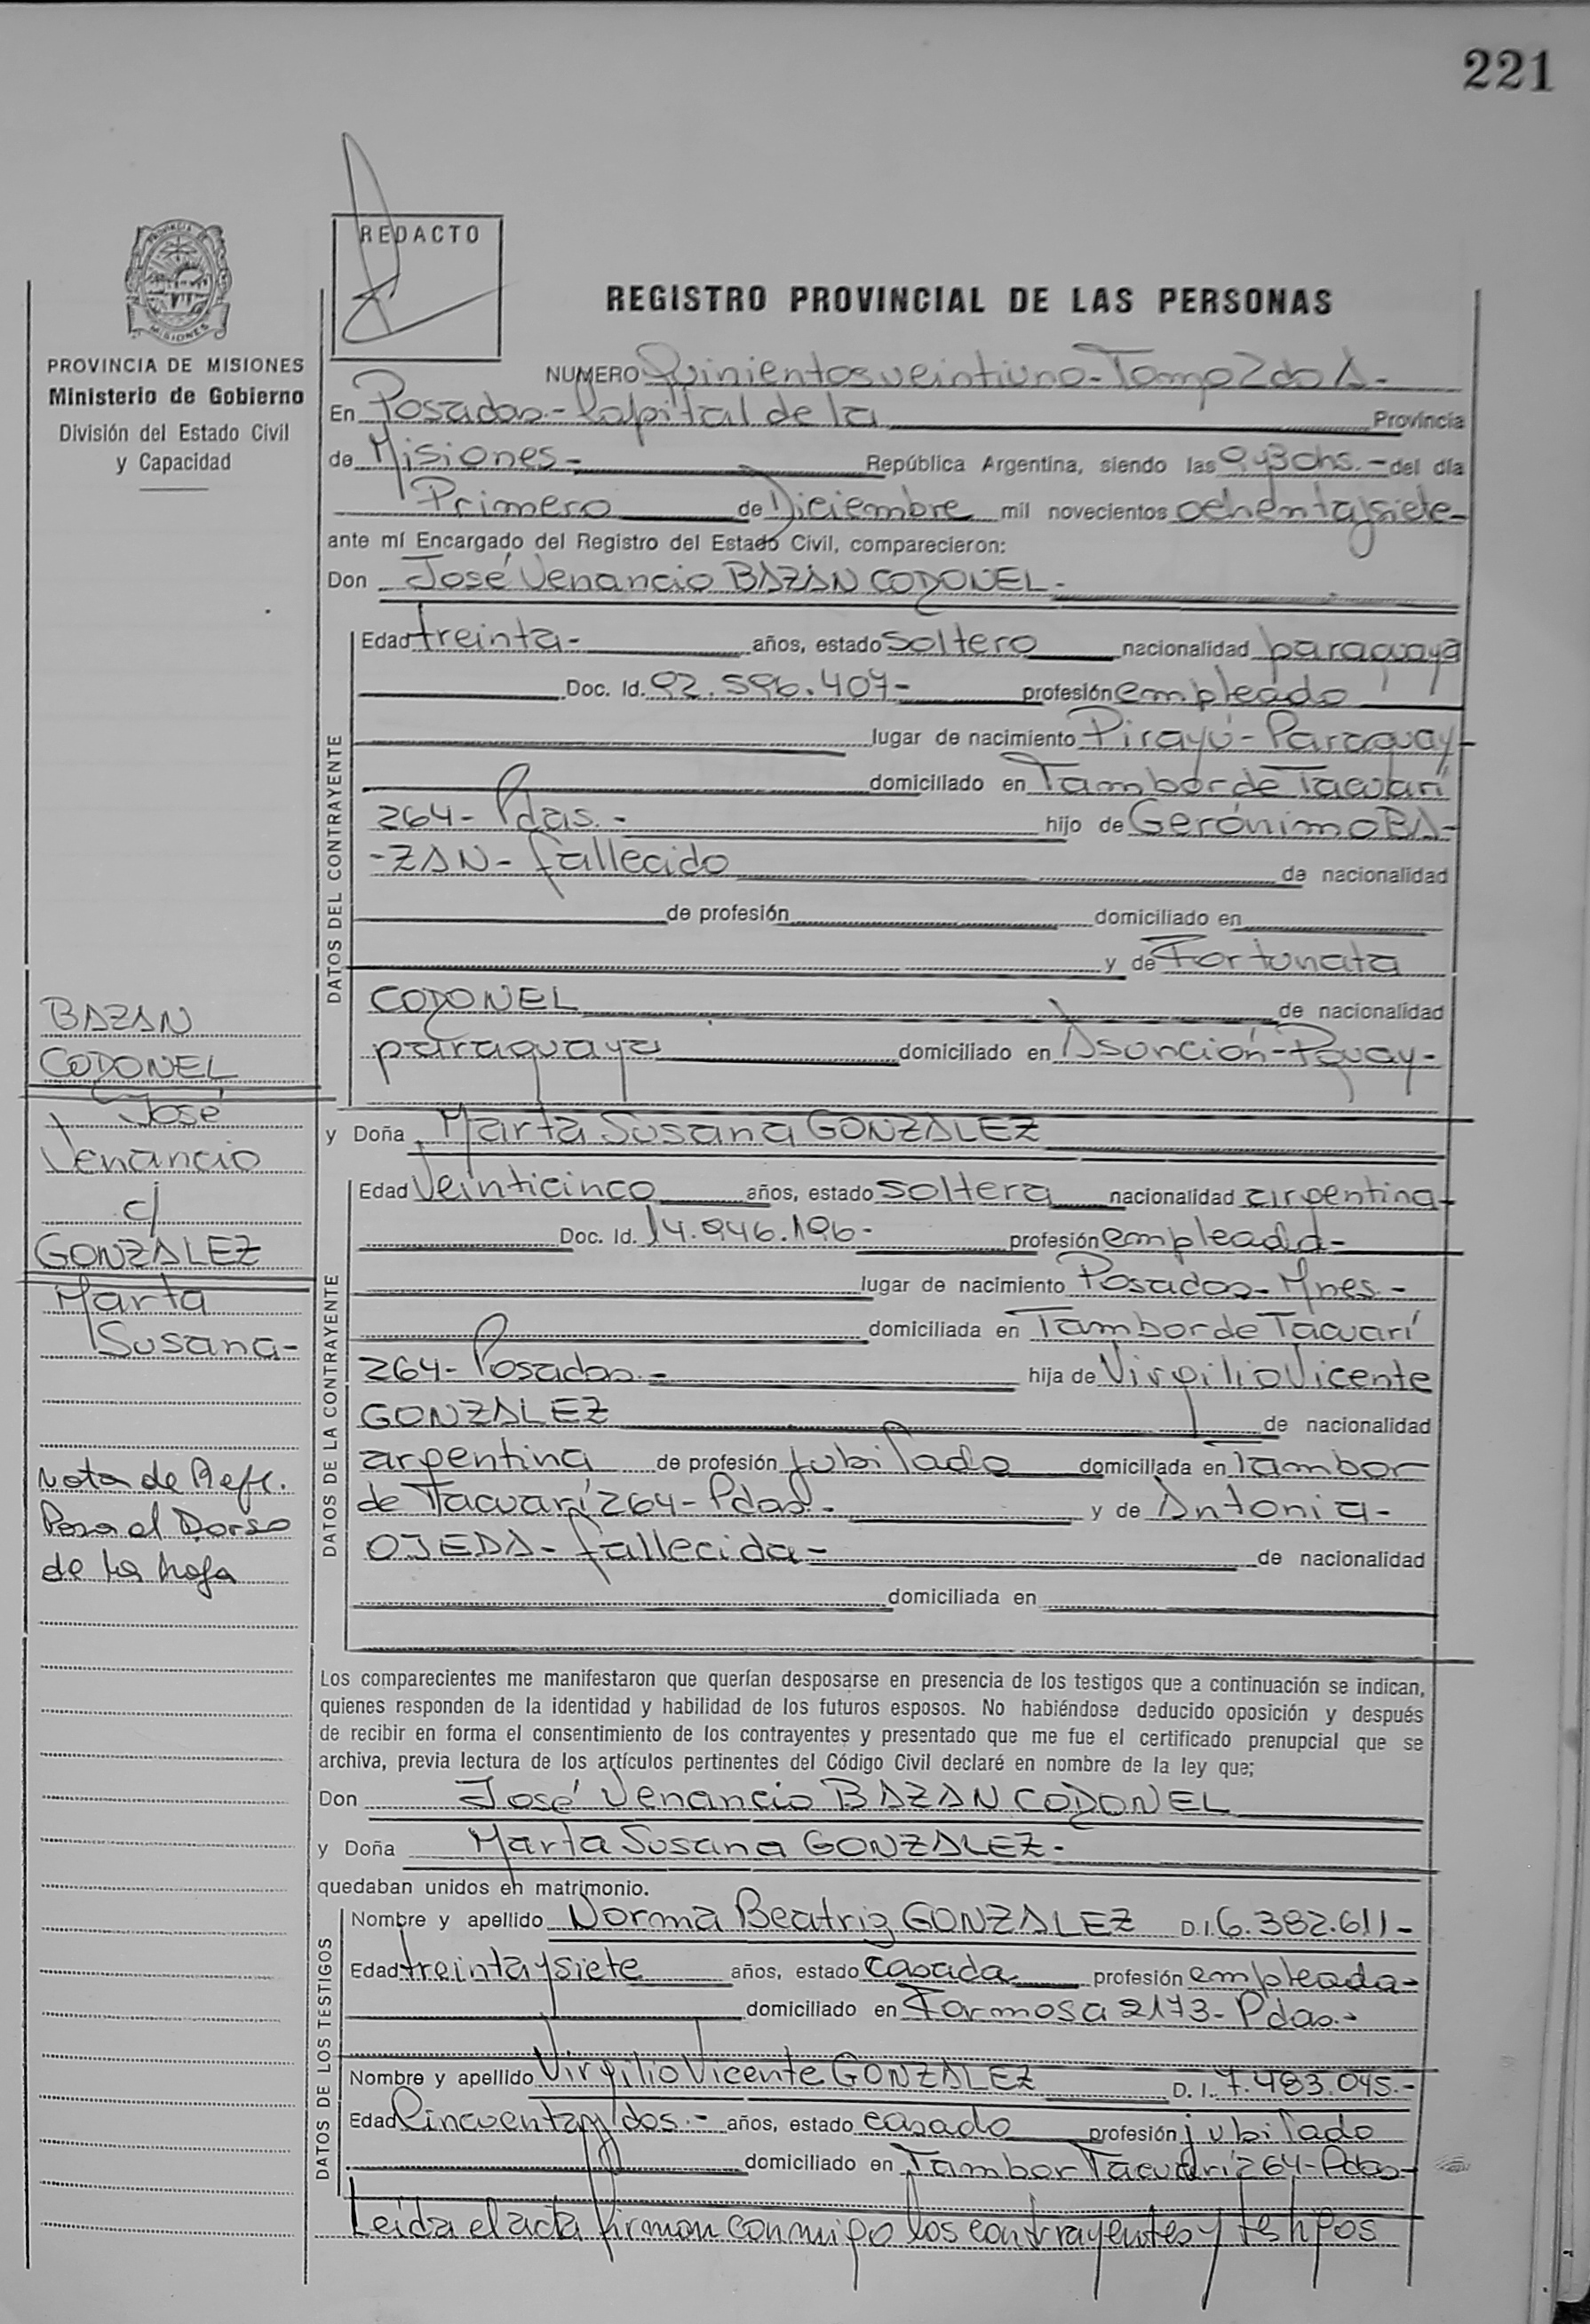 221
REDACTO
REGISTRO PROVINCIAL DE LAS PERSONAS
PROVINCIA DE MISIONES
Ministerio de Gobierno
División del Estado Civil
y Capacidad
NUMERO Quinientos veintiuno - Tomo 2do A -
En Posadas - Capital de la Provincia
de Misiones - República Argentina, siendo las 9 y 30 hs. - del día
Primero de Diciembre mil novecientos ochenta y siete -
ante mí Encargado del Registro del Estado Civil, comparecieron:
Don José Venancio BAZAN CODONEL -
DATOS DEL CONTRAYENTE
Edad treinta - años, estado soltero nacionalidad paraguaya
Doc. Id. 92.596.407 - profesión empleado
lugar de nacimiento Pirayú - Paraguay -
domiciliado en Tambor de Tacuarí
264 - Pdas. - hijo de Gerónimo BA-
-ZAN - fallecido de nacionalidad
de profesión domiciliado en
y de Fortunata
CODONEL de nacionalidad
paraguaya domiciliado en Asunción - Pguay -
y Doña Marta Susana GONZALEZ
DATOS DE LA CONTRAYENTE
Edad Veinticinco años, estado soltera nacionalidad argentina -
Doc. Id. 14.946.196 - profesión empleada -
lugar de nacimiento Posadas - Mnes. -
domiciliada en Tambor de Tacuarí
264 - Posadas - hija de Virgilio Vicente
GONZALEZ de nacionalidad
argentina de profesión jubilado domiciliada en Tambor
de Tacuarí 264 - Pdas. - y de Antonia -
OJEDA - fallecida - de nacionalidad
domiciliada en
BAZAN
CODONEL
José
Venancio
c/
GONZALEZ
Marta
Susana -
Nota de Refe.
Pasa al Dorso
de la hoja
Los comparecientes me manifestaron que querían desposarse en presencia de los testigos que a continuación se indican,
quienes responden de la identidad y habilidad de los futuros esposos. No habiéndose deducido oposición y después
de recibir en forma el consentimiento de los contrayentes y presentado que me fue el certificado prenupcial que se
archiva, previa lectura de los artículos pertinentes del Código Civil declaré en nombre de la ley que;
Don José Venancio BAZAN CODONEL
y Doña Marta Susana GONZALEZ -
quedaban unidos en matrimonio.
DATOS DE LOS TESTIGOS
Nombre y apellido Norma Beatriz GONZALEZ D.I. 6.382.611 -
Edad treinta y siete años, estado casada profesión empleada -
domiciliado en Formosa 2173 - Pdas. -
Nombre y apellido Virgilio Vicente GONZALEZ D.I. 7.483.045. -
Edad Cincuenta y dos - años, estado casado profesión jubilado
domiciliado en Tambor Tacuarí 264 - Pdas -
Leída el acta firman conmigo los contrayentes y testigos